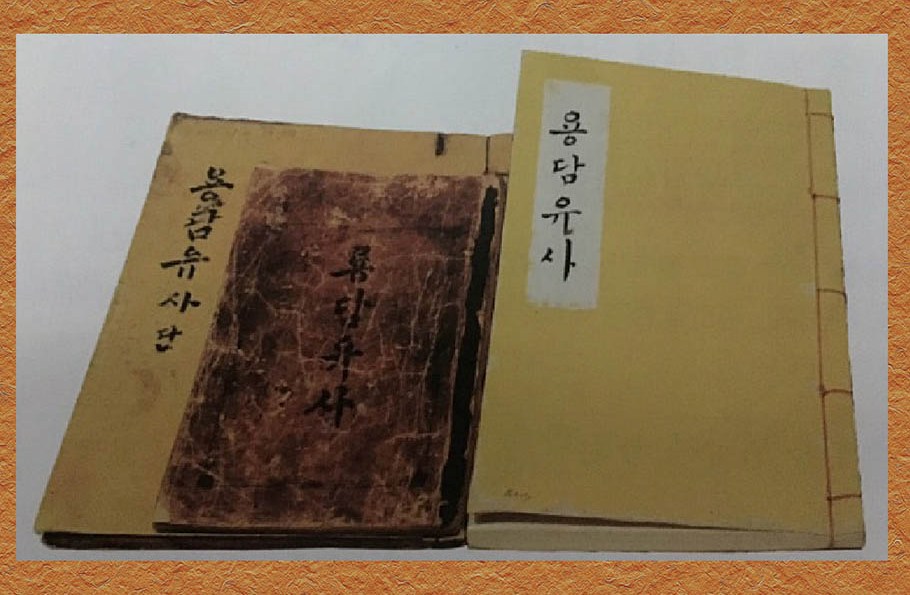 용담유사단
룡담유사
용담유사